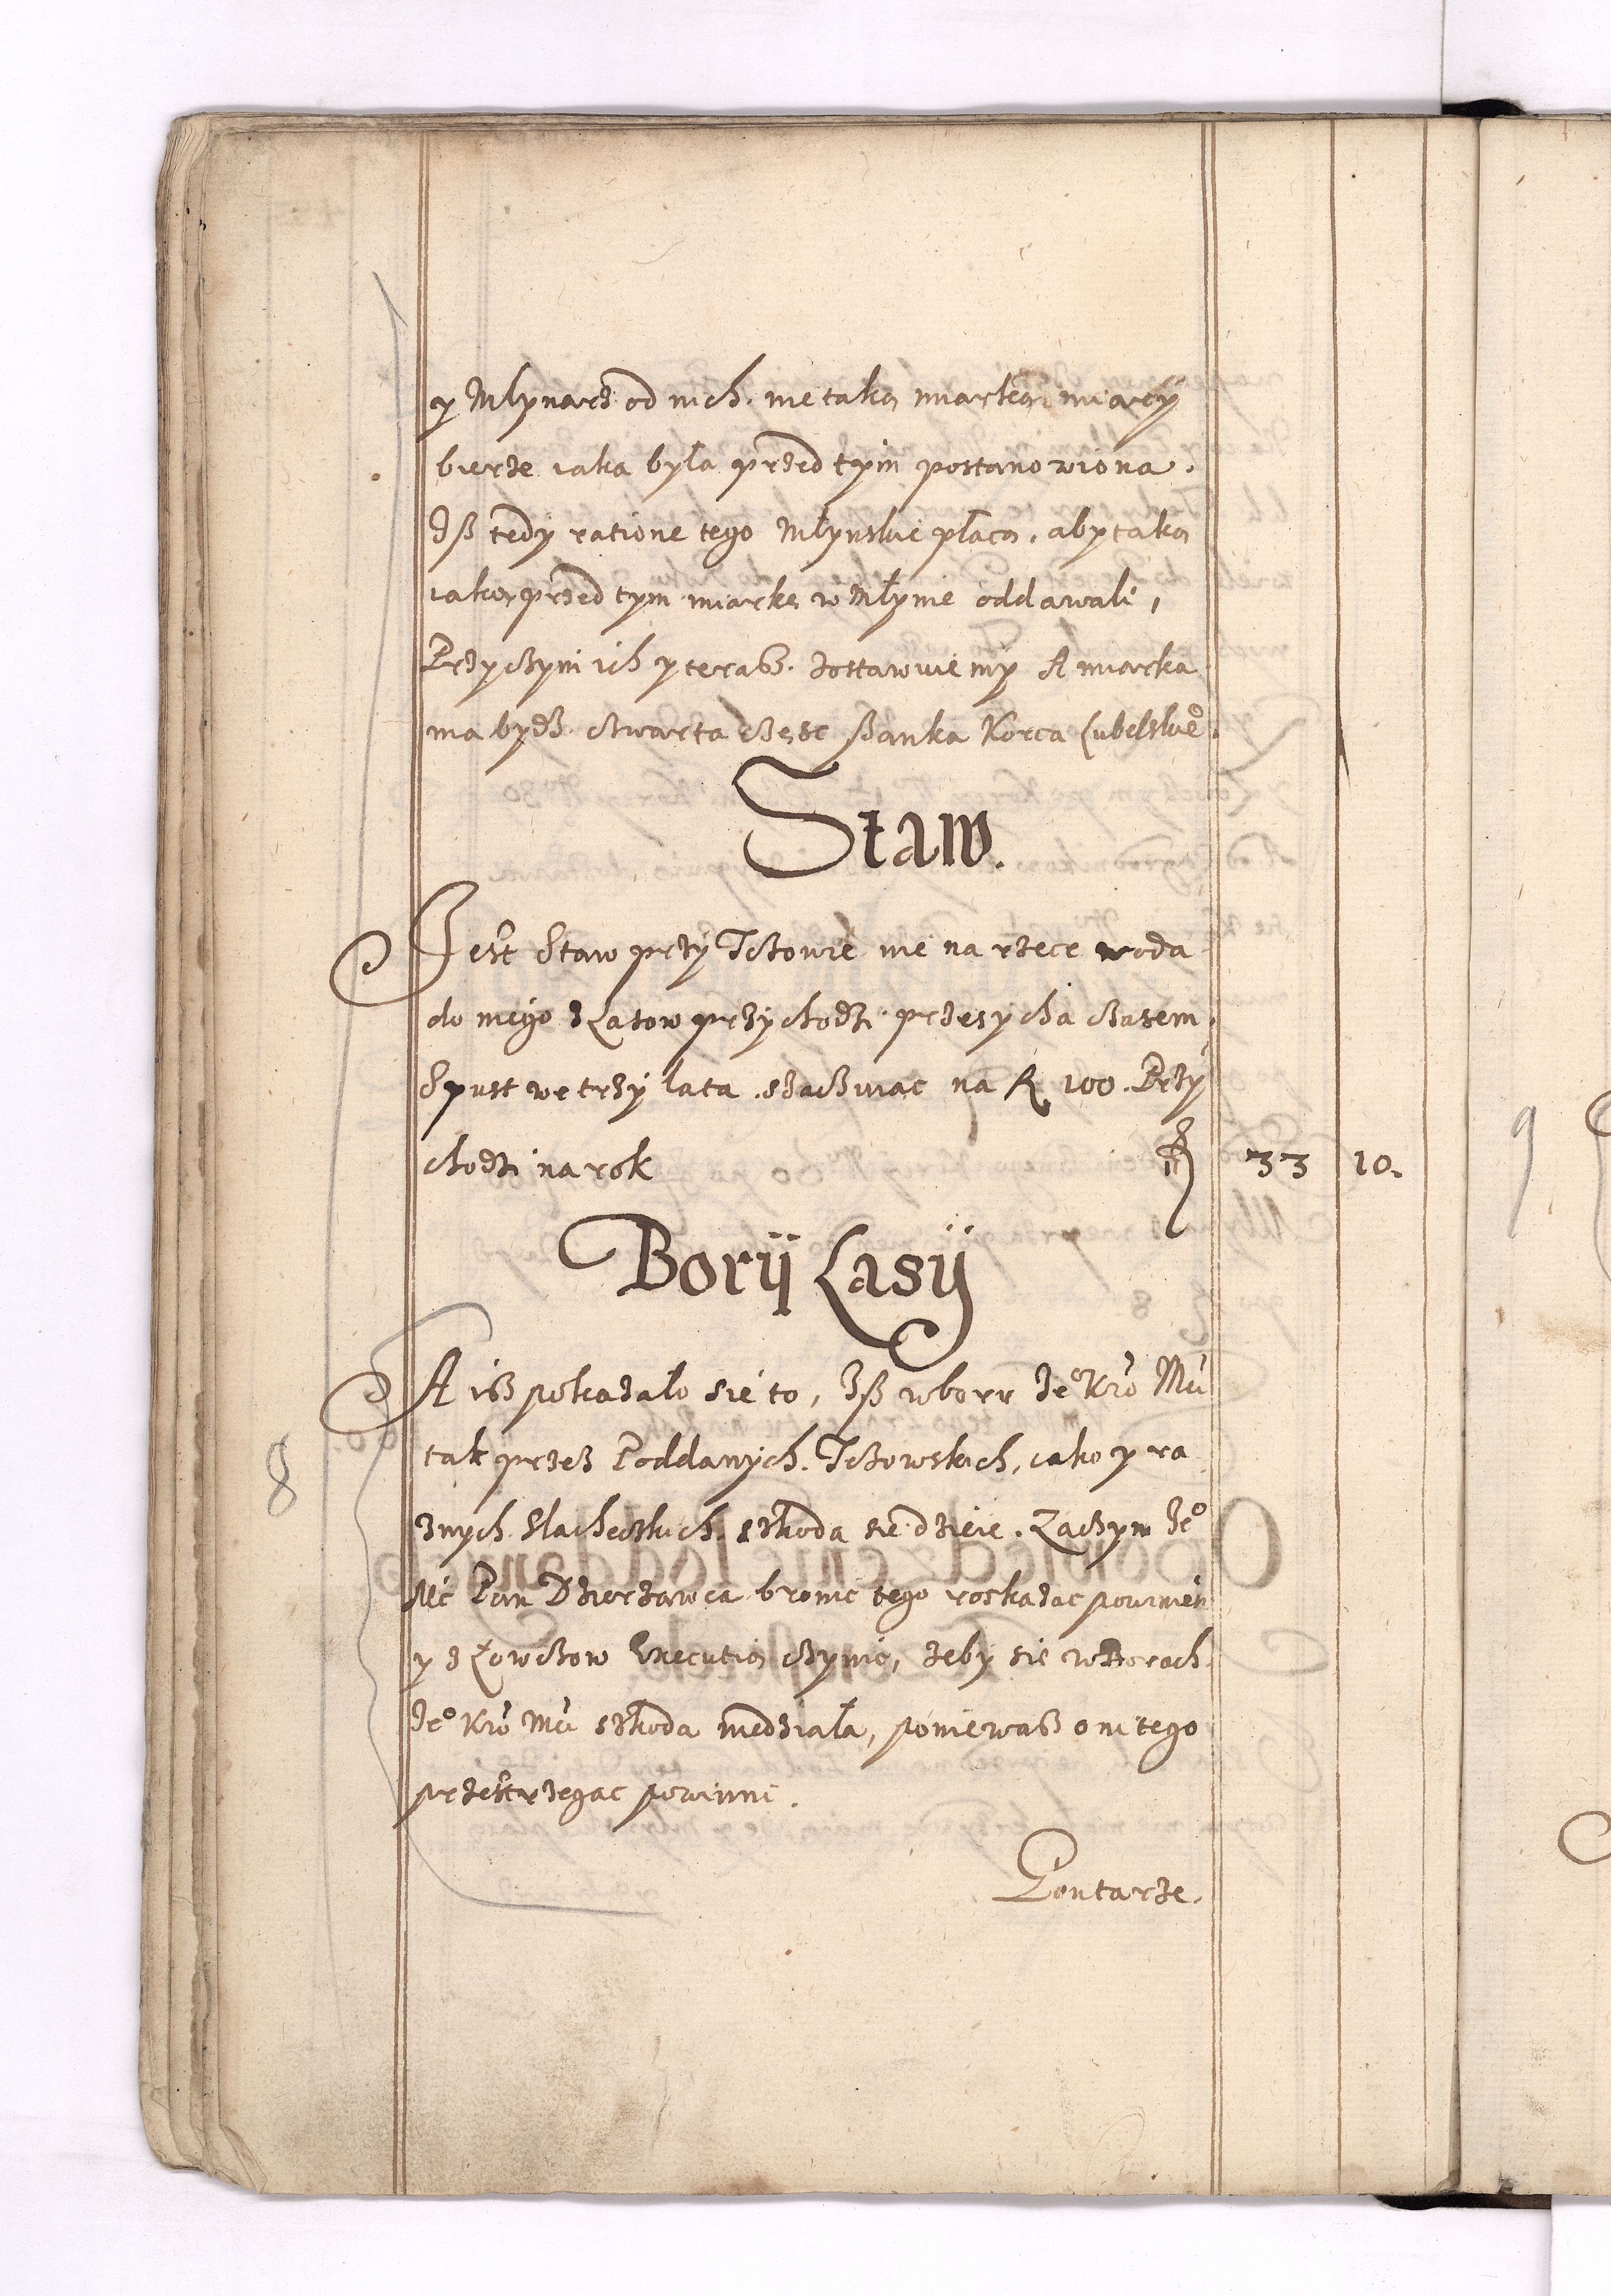 y Mlynarz od nich. nie taką miarką miary
bierze iaka była przed tym postanowiona.
Iß tedy ratione tego Młynskie płacą, aby taką
iaką przed tym miarkę w Młynie oddawali,
Przy czym ich y teraß. zostawuiemy A miarka
ma bydź. czwarta część ßanka Korca Lubelskie⁰.
Staw.
Jest Staw przy Tczowie nie na rzece woda
do niego z Łazow przychodzi. przesycha czasem.
Spust we trzy lata. szacuiąc na fl 100. Przy
chodzi na rok fl 33 10.
Borÿ Lasÿ
A iß pokazało się to, Iß w boru Je⁰ Kro Mci
tak przez Poddanych. Tczowskich, iako y ra
znych Slacheckich. szkoda się dzieie. Zaczym Je⁰
Mć Pan Dzierżawca bronić tego roskazac powinien
y z Łowczow Executią czynic, żeby się w Borach.
Je⁰ Kro Mci szkoda niedziała, poniewaß oni tego
przestrzegac powinni.
Gontarze.
8
9